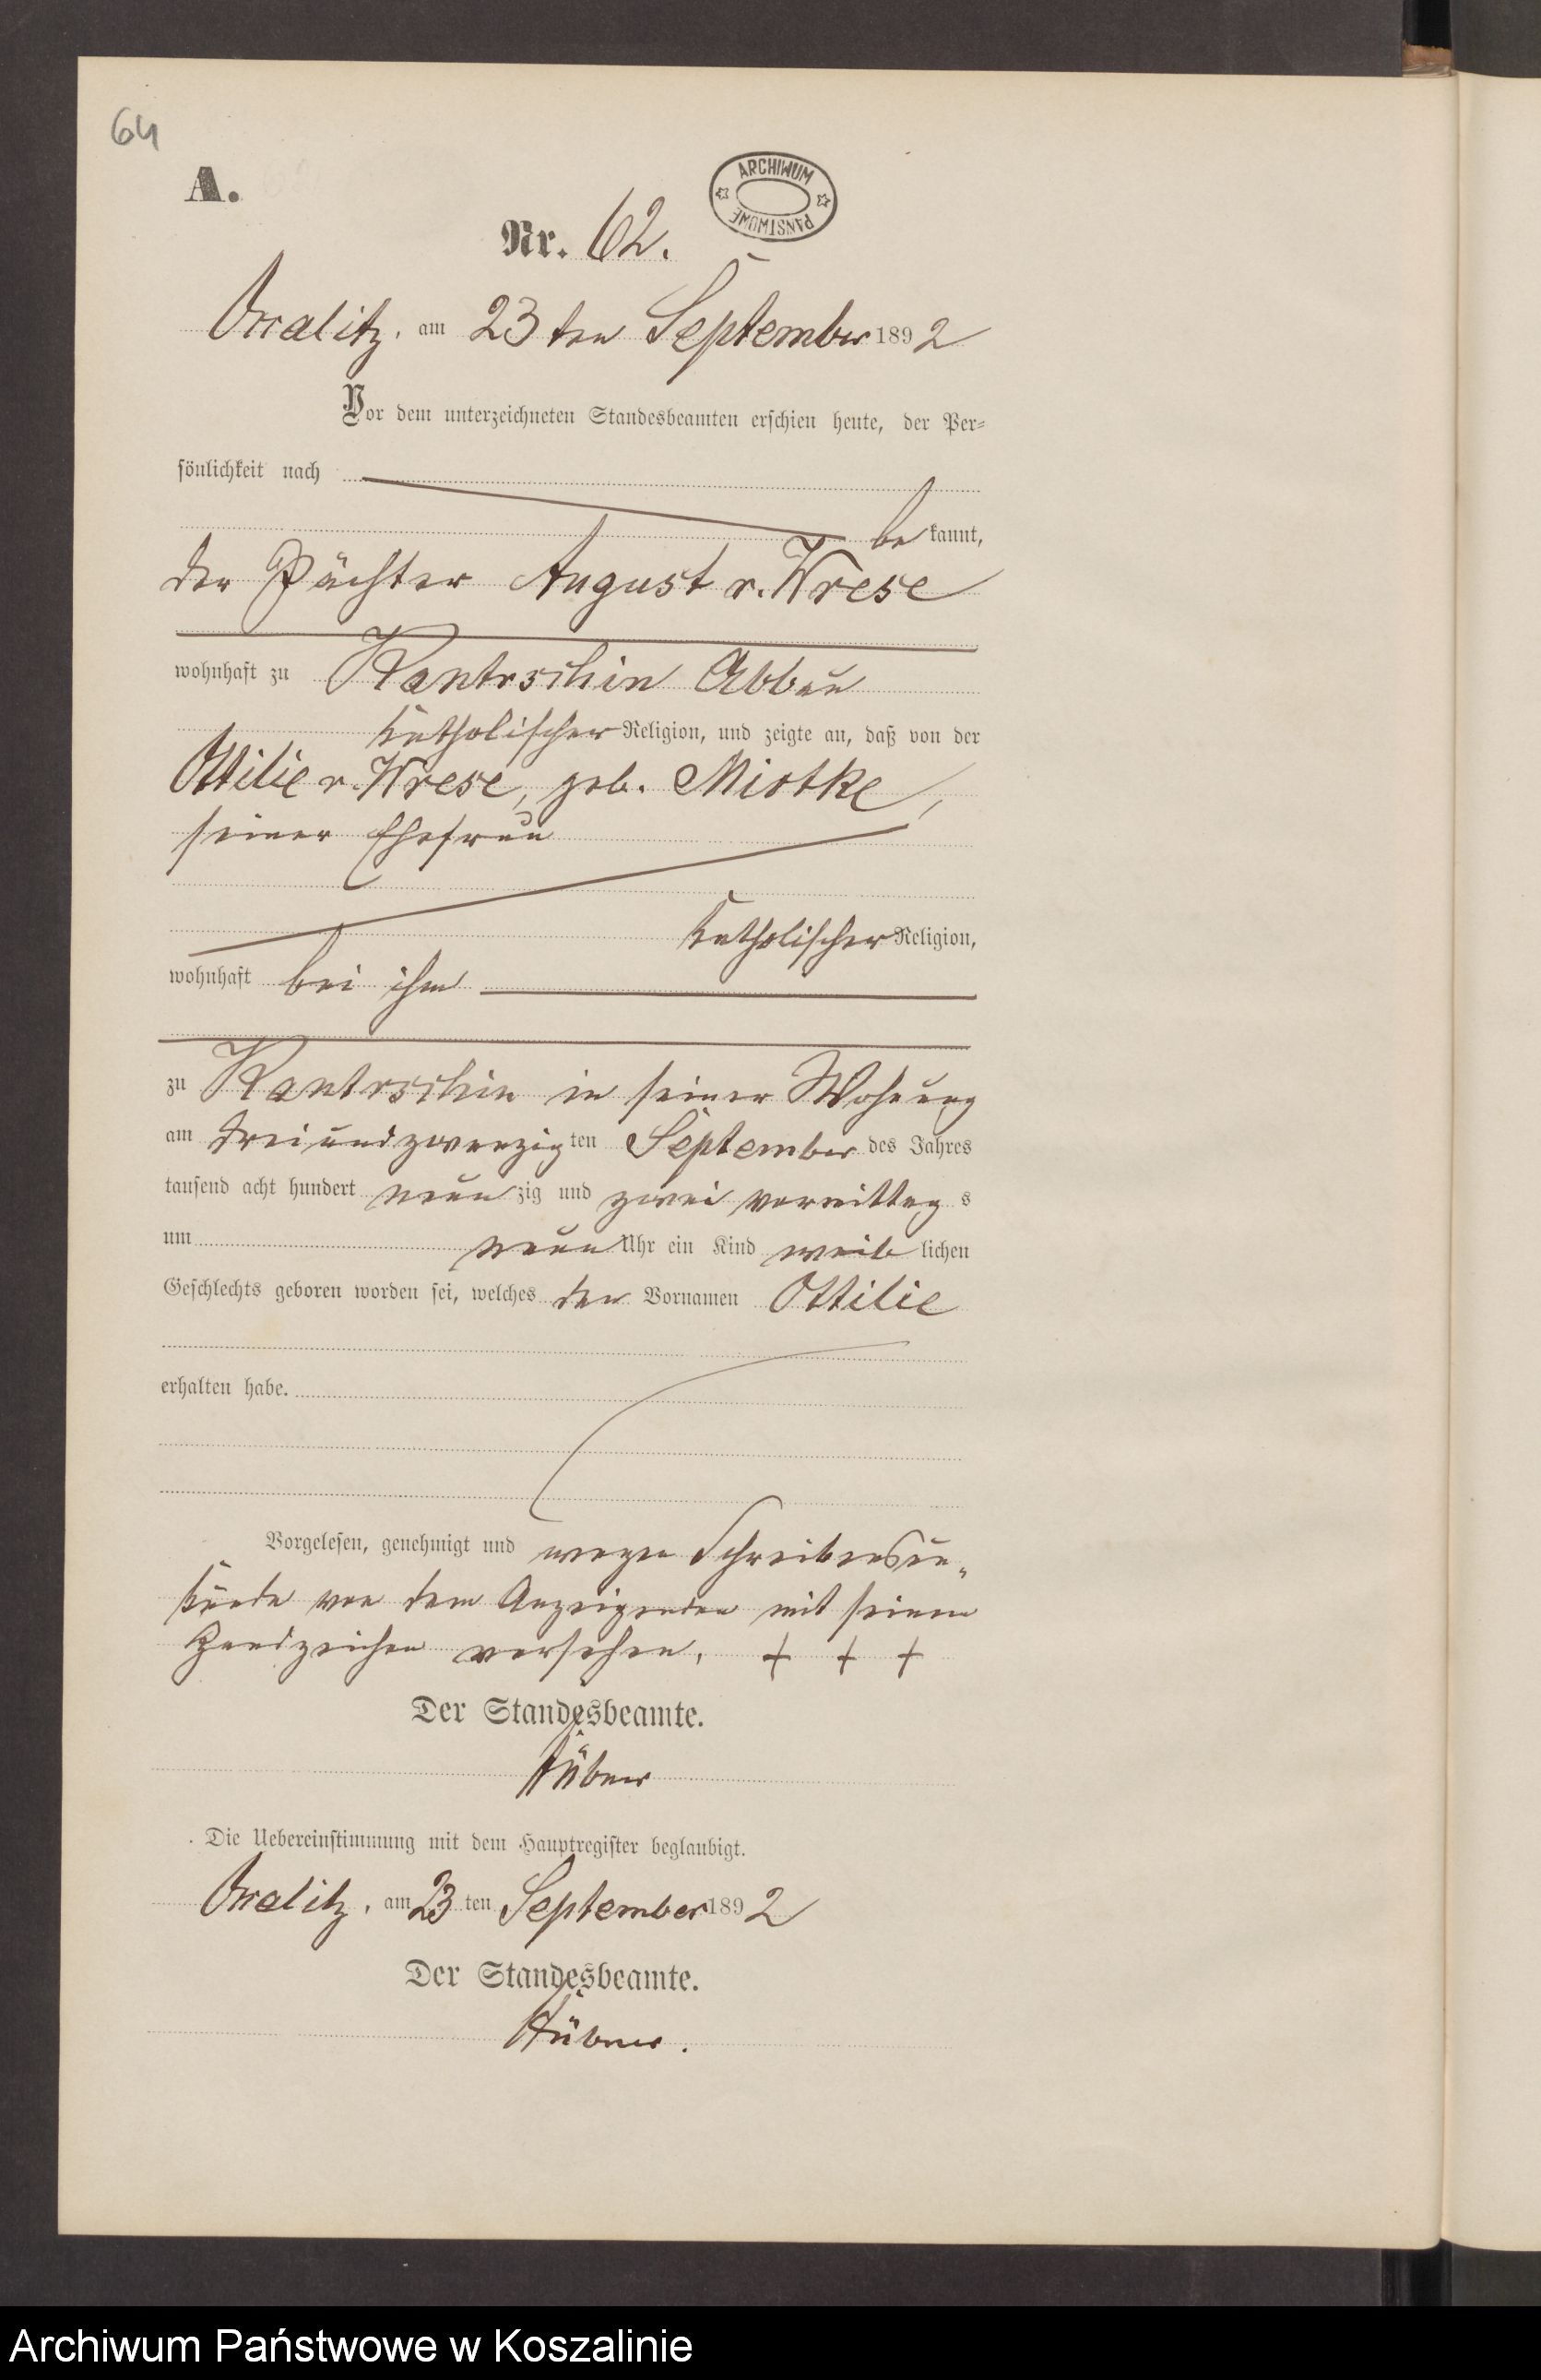 64
A.
ARCHIWUM PAŃSTWOWE
Nr. 62.
am 23 ten September 1892
Vor dem unterzeichneten Standesbeamten erschien heute, der Per-
sönlichkeit nach
bekannt,
der Pächter August v. Wrese
wohnhaft zu Kantrschin Abbau
katholischer Religion, und zeigte an, daß von der
Ottilie v. Wrese, geb. Miotke,
seiner Ehefrau
katholischer Religion,
wohnhaft bei ihm
zu Kantrschin in seiner Wohnung
am dreiundzwanzigten September des Jahres
tausend acht hundert neunzig und zwei vormittags
um neun Uhr ein Kind weiblichen
Geschlechts geboren worden sei, welches den Vornamen Ottilie
erhalten habe.
Vorgelesen, genehmigt und wegen Schreibensun-
kunde von dem Anzeigenden mit seinem
Handzeichen versehen. + + +
Der Standesbeamte.
Hübner
Die Uebereinstimmung mit dem Hauptregister beglaubigt.
am 23 ten September 1892
Der Standesbeamte.
Hübner.
Archiwum Państwowe w Koszalinie